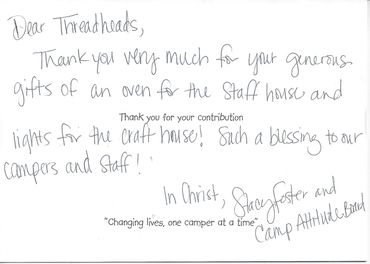 Dear Threadheads,
Thank you very much for your generous
gifts of an oven for the staff house and
Thank you for your contribution
lights for the craft house! Such a blessing to our
campers and staff!
In Christ, Stacy Foster and
Camp Attitude Board
"Changing lives, one camper at a time"